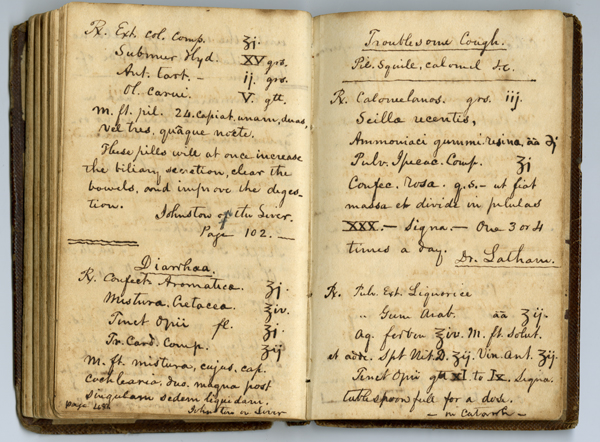 ℞. Ext. Col. Comp. ʒj.
Submur Hyd. XV grs.
Ant. tart. – ij. grs.
Ol. carui. V. gtt.
M. ft. pil. 24. Capiat unam, duas,
vel tres, quâque nocte.
These pills will at once increase
the biliary secretion, clear the
bowels, and improve the diges-
tion.
Johnston on the Liver.
Page 102. —
Diarrhœa.
℞. Confect. Aromatica. ʒj.
Mistura Cretacea. ʒiv.
Tinct Opii fl. ʒj.
Tr. Card. Comp. ʒij
M. ft. mistura, cujus, cap.
cochlearea. duo. magna post
singulam sedem liquidam.
Page
Johnston on Liver
Troublesome Cough.
Pil. Squile, calomel &c.
℞. Calomelanos. grs. iij.
Scilla recentis,
Ammoniaci gummi resina, āā ʒj
Pulv. Ipecac. Comp. ʒj
Confec. Rosa. q.s. – ut fiat
massa et divide in pilulas
XXX. – Signa. – One 3 or 4
times a day.
Dr. Latham.
℞. Pulv. Ext. Liquorice
" Gum Arab. āā ʒij.
Aq. ferven ʒiv. M. ft. Solut.
et adde. Spt Nit. D. ʒij. Vin. Ant. ʒij.
Tinct Opii gtt XI to Ix. Signa.
tablespoon full for a dose.
– on Catarrh –